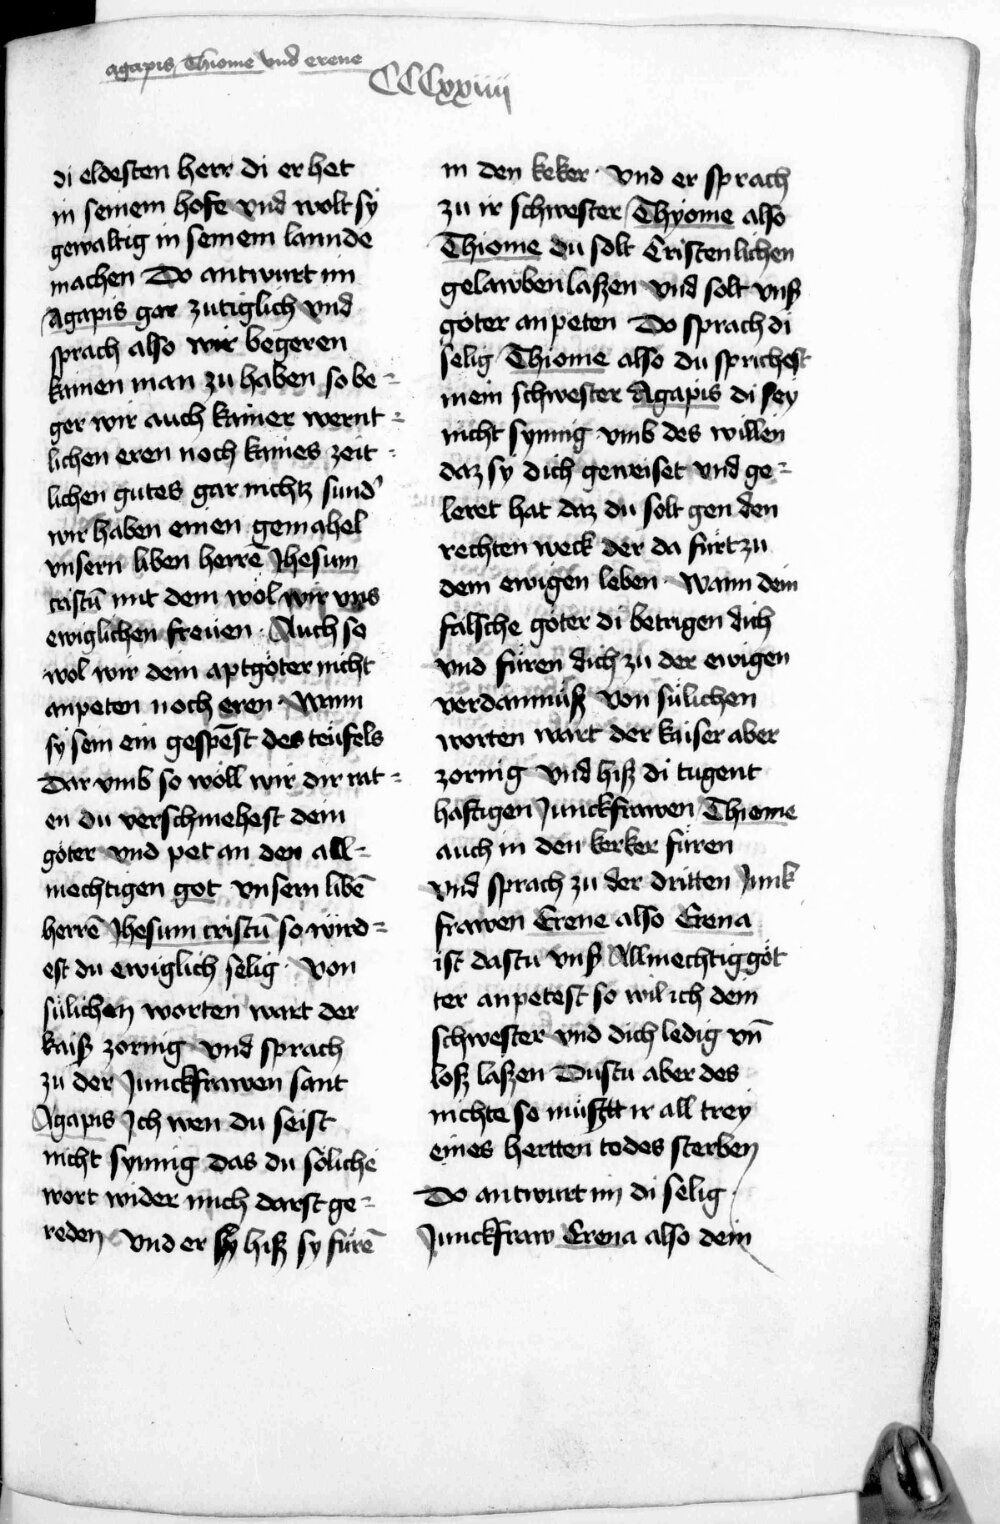 agapis Thiome vnd erene
CCCxxiiii
di eldesten herr di er het
in seinem hofe vnd wolt sy
gewaltig in seinem lannde
machen Do antwurt im
Agapis gar zutiglich vnd
sprach also wir begeren
kainen man zu haben so be=
ger wir auch kainer wernt=
lichen eren noch kaines zeit=
lichen gutes gar nichtz sund'
wir haben einen gemahel
vnsern liben herrē Jhesum
cristū mit dem wöl wir vns
ewiglichen freüen · Auch so
wol wir dein aptgöter nicht
anpeten noch eren · Wann
sy sein ein gespēst des teüfels
Dar vmb so wöll wir dir rat=
en du verschmehest dein
göter vnd pet an den all=
mechtigen got vnsern libē
herrē Jhesum cristū so wird=
est du ewiglich selig · Von
sülichen worten wart der
kaiß zornig vnd sprach
zu der Junckfrawen sant
Agapis Ich wen du seist
nicht synnig das du söliche
wort wider mich darst ge=
reden Vnd er hiß sy fürē
in den keker · Vnd er sprach
zu ir schwester Thyome also
Thiome du solt Cristenlichen
gelawben laßen vnd solt vnß
göter anpeten Do sprach di
selig Thiome also du sprichest
mein schwester Agapis di sey
nicht synnig vmb des willen
daz sy dich geweiset vnd ge=
leret hat daz du solt gen den
rechten weck der da fürt zu
dem ewigen leben · Wann dein
falsche göter di betrigen dich
vnd füren dich zu der ewigen
verdamnüß Von sülichen
worten wart der kaiser aber
zornig vnd hiß di tugent
haftigen Junckfrawen Thieme
auch in den kerker füren
vnd sprach zu der dritten Junk
frawen Erene also Erena
ist dastu vnß Allmechtig göt
ter anpetest so wil ich dein
schwester vnd dich ledig vn̄
loß laßen Dustu aber des
nichte so müßtt ir all trey
eines hertten todes sterben
Do antwurt im di selig
Junckfraw Erena also dein